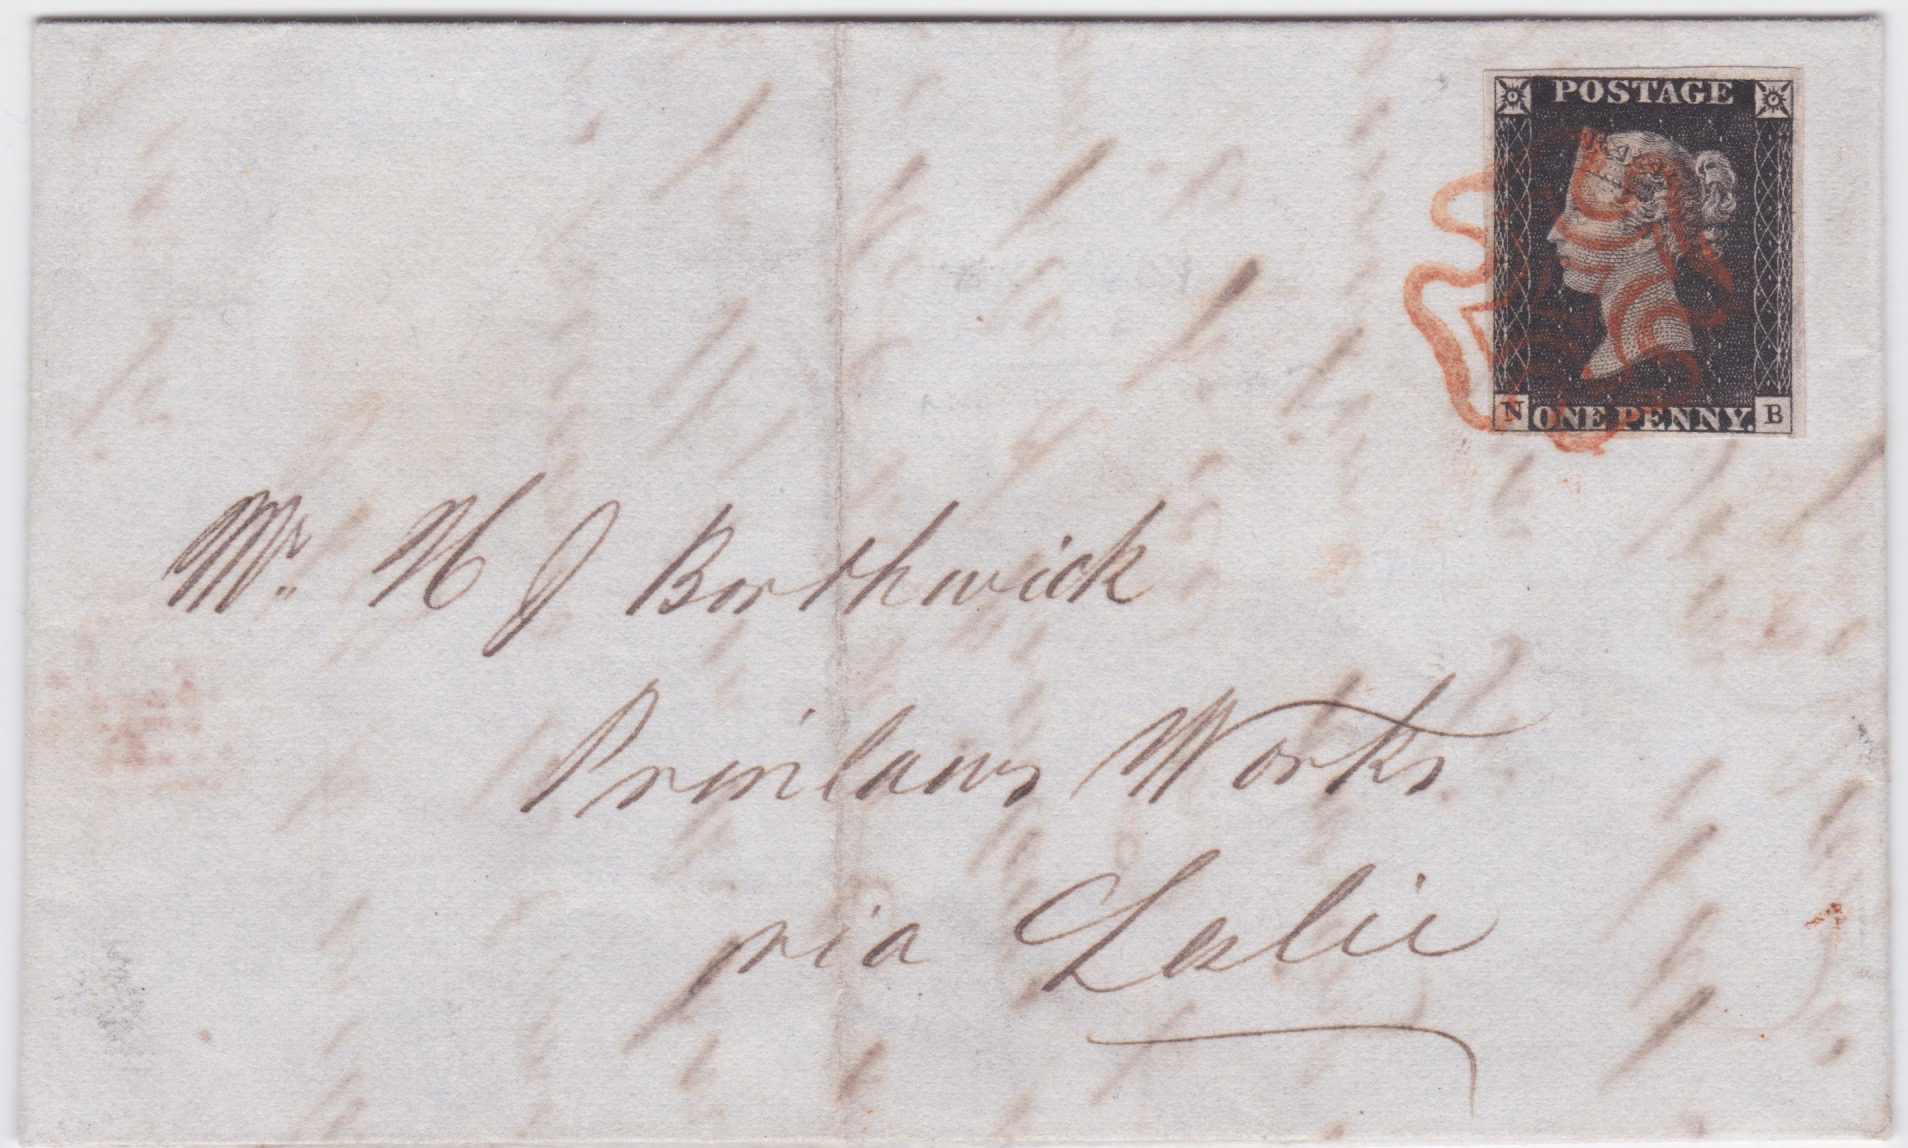 POSTAGE
N ONE PENNY. B
Mr. H J Borthwick
Prinlaws Works
via Leslie